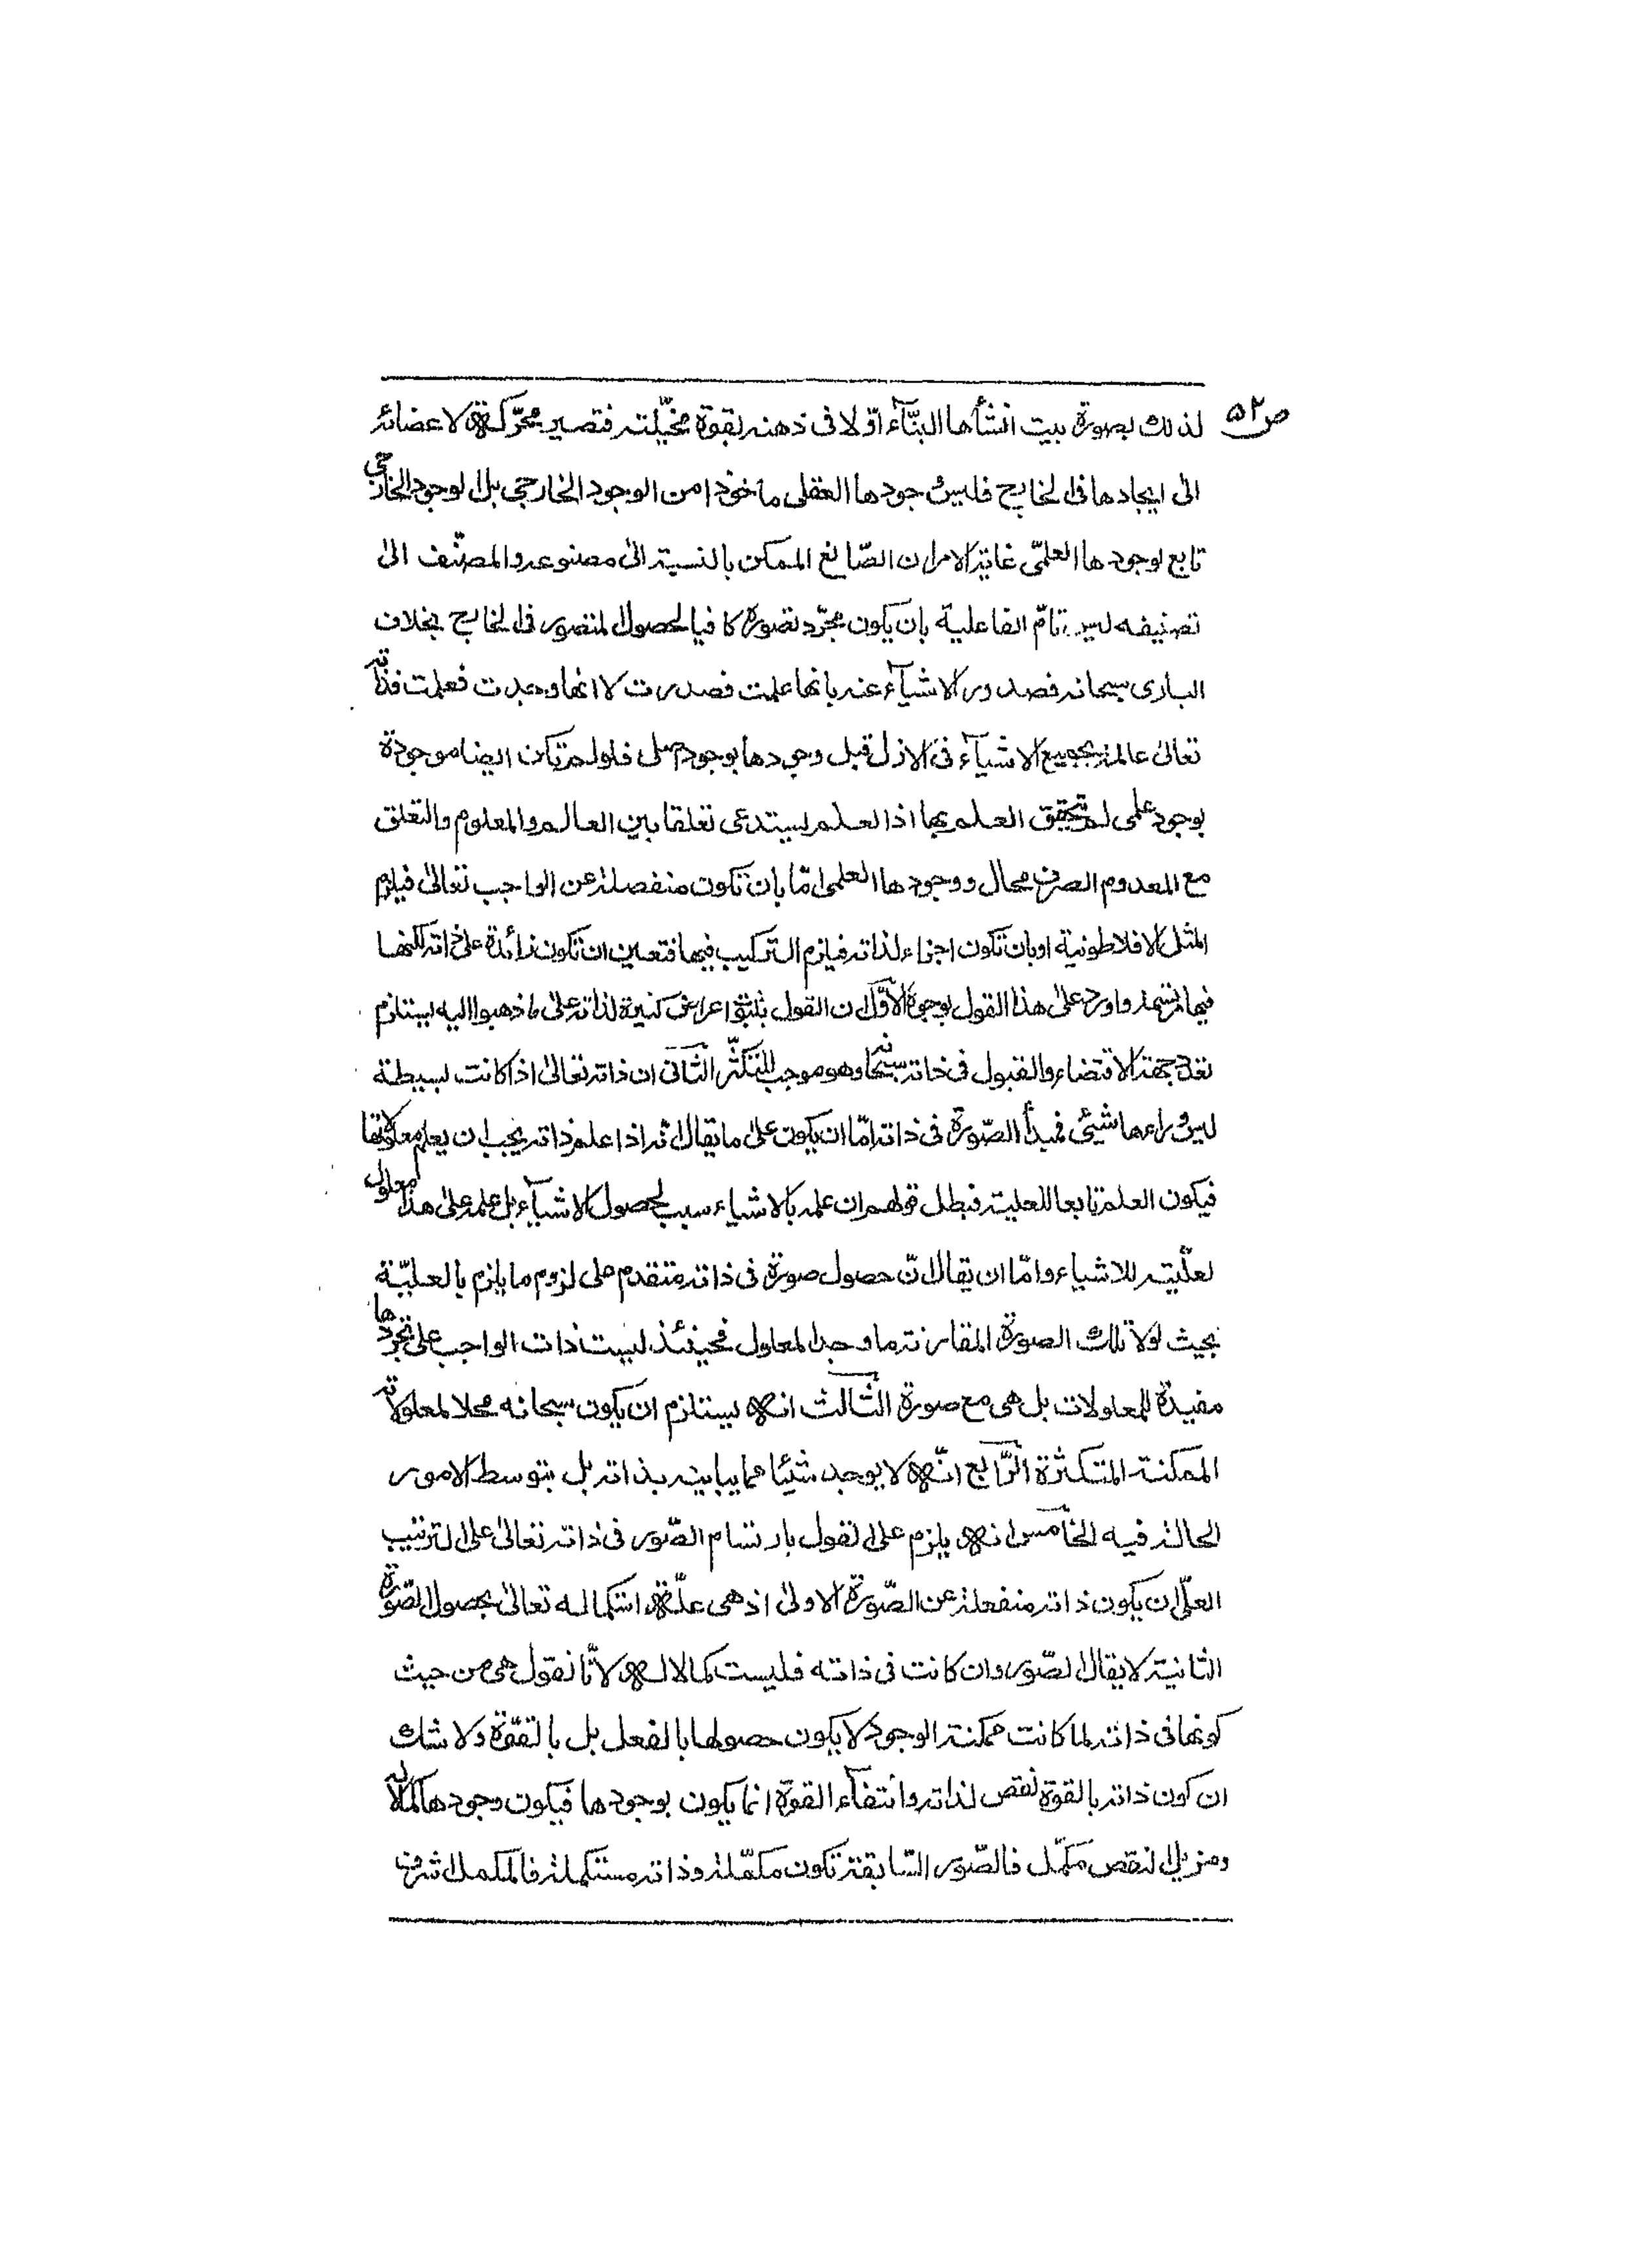 ص۵۲
لذلك بصورة بيت انشأها البنّآء اوّلا فى ذهنه بقوة مخيّلته فتصير محرّكة لاعضائه
الى ايجادها فى الخارج فليس وجودها العقلى ماخوذا من الوجود الخارجى بل الوجود الخارجى
تابع لوجودها العلمّى غاية الامر ان الصّانع الممكن بالنسبة الى مصنوعه والمصنّف الى
تصنيفه ليس تامّ الفاعلية بان يكون مجرّد تصوره كافيا لحصول المتصور فى الخارج بخلاف
البارى سبحانه فصدور الاشيآء عنه بانها علمت فصدرت لا انها وجدت فعلمت فذاته
تعالى عالمة بجميع الاشيآء فى الازل قبل وجودها بوجود اصلى فلو لم تكن ايضا موجودة
بوجود علمى لم يتحقق العلم بها اذ العلم يستدعى تعلقا بين العالم والمعلوم والتعلق
مع المعدوم الصرف محال ووجودها العلمى امّا بان تكون منفصلة عن الواجب تعالى فيلزم
المثل الافلاطونية او بان تكون اجزاء لذاته فيلزم التركيب فيها فتعين ان تكون زائدة على ذاته لكنها
فيها مرتسمة واورد على هذا القول بوجوه الاوّل ان القول بثبوت اعراض كثيرة لذاته على ما ذهبوا اليه يستلزم
تعدد جهة الاقتضاء والقبول فى ذاته سبحانه وهو موجب للتكثّر الثانى ان ذاته تعالى اذا كانت بسيطة
ليس وراءها شيئ فمبدأ الصّورة فى ذاته امّا ان يكون على ما يقال انه اذا علم ذاته يجب ان يعلم معلولاتها
فيكون العلم تابعا للعلية فبطل قولهم ان علمه بالاشياء سبب لحصول الاشيآء بل علمه على هذا معلول
لعلّيته للاشياء وامّا ان يقال انّ حصول صورة فى ذاته متقدم على لزوم ما يلزم بالعليّة
بحيث لولا تلك الصورة المقارنة ما وجد المعلول فحينئذ ليست ذات الواجب على تجردها
مفيدة للمعلولات بل هى مع صورة الثالث انه يستلزم ان يكون سبحانه محلا لمعلولاته
الممكنة المتكثرة الرّابع انّه لا يوجد شيئا مما يباينه بذاته بل بتوسط الامور
الحالة فيه الخامس انه يلزم على القول بارتسام الصّور فى ذاته تعالى على الترتيب
العلّى ان يكون ذاته منفعلة عن الصّورة الاولى اذ هى علّة استكماله تعالى بحصول الصّورة
الثانية لا يقال الصّور وان كانت فى ذاته فليست كمالا له لانّا نقول هى من حيث
كونها فى ذاته لما كانت ممكنة الوجود لا يكون حصولها بالفعل بل بالقوّة ولا شك
ان كون ذاته بالقوة نقص لذاته وانتفآء القوة انما يكون بوجودها فيكون وجودها كمالا له
ومزيل النقص مكمّل فالصّور السّابقة تكون مكمّلة وذاته مستكملة فالمكمل اشرف